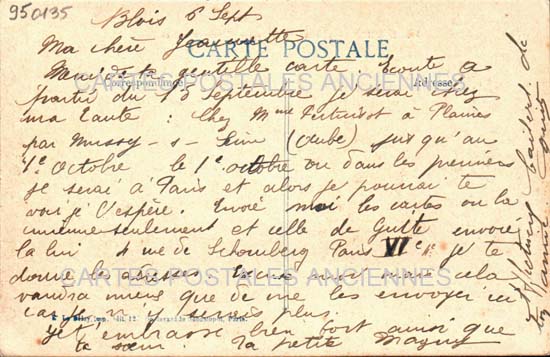 950135
Blois 6 Sept
Ma chère Jeannette
CARTE POSTALE
Merci de ta gentille carte Ecoute à
Correspondance Adresse
CARTES POSTALES ANCIENNES
partir du 13 Septembre je serai chez
ma tante : Chez Mme à Plaines
par Mussy - s - Seine (Aube) jusqu'au
1e Octobre le 1e octobre ou dans les premiers
je serai à Paris et alors je pourrai te
voir je l'espère. Envoie moi les cartes ou la
mienne seulement et celle de Guitte envoie
la lui 4 rue de Schomberg Paris VIe je te
donne les adresses
CARTES POSTALES ANCIENNES
cela
vaudra mieux que de me les envoyer ici
car je n'y serais plus.
Je t'embrasse bien fort ainsi que
ta sœur ta petite
baisers de